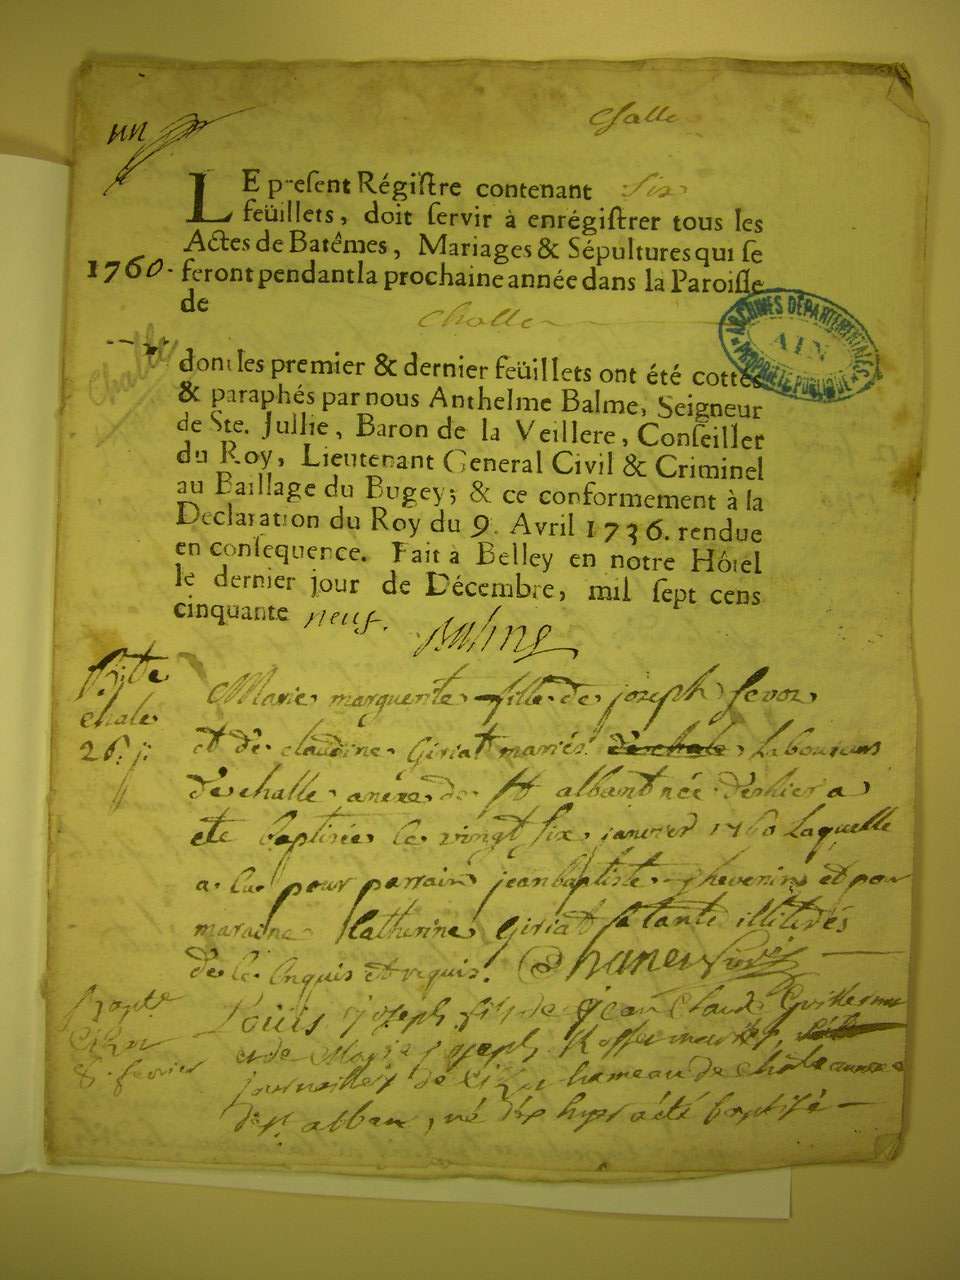 Challe
un
LE present Régistre contenant six
feüillets, doit servir à enrégistrer tous les
Actes de Batêmes, Mariages & Sépultures qui se
1760.
feront pendant la prochaine année dans la Paroisse
de
Challe
ARCHIVES DÉPARTEMENTALES
AIN
PROPRIÉTÉ PUBLIQUE
Challe
dont les premier & dernier feüillets ont été cottés
& paraphés par nous Anthelme Balme, Seigneur
de Ste. Jullie, Baron de la Veillere, Conseiller
du Roy, Lieutenant General Civil & Criminel
au Baillage du Bugey; & ce conformement à la
Declaration du Roy du 9. Avril 1736. rendue
en consequence. Fait à Belley en notre Hôtel
le dernier jour de Décembre, mil sept cens
cinquante neuf.
Balme
Bte
chale
26 j
Marie marguerite fille de joseph
et de claudine Giriat mariés laboureurs
de challe anexe de st alban née d'ehier a
ete baptisée le vingt six janvier 1760 Laquelle
a eu pour parrain jean baptiste thevenin et pour
maraine Catherine Giriat sa tante illiterés
de ce enquis et requis.
Bapt
8. fevrier
Louis joseph fils de jean Claude
et de Marie joseph
journaliers de hameau de chale annexe
de st alban, né hyer a été baptisé